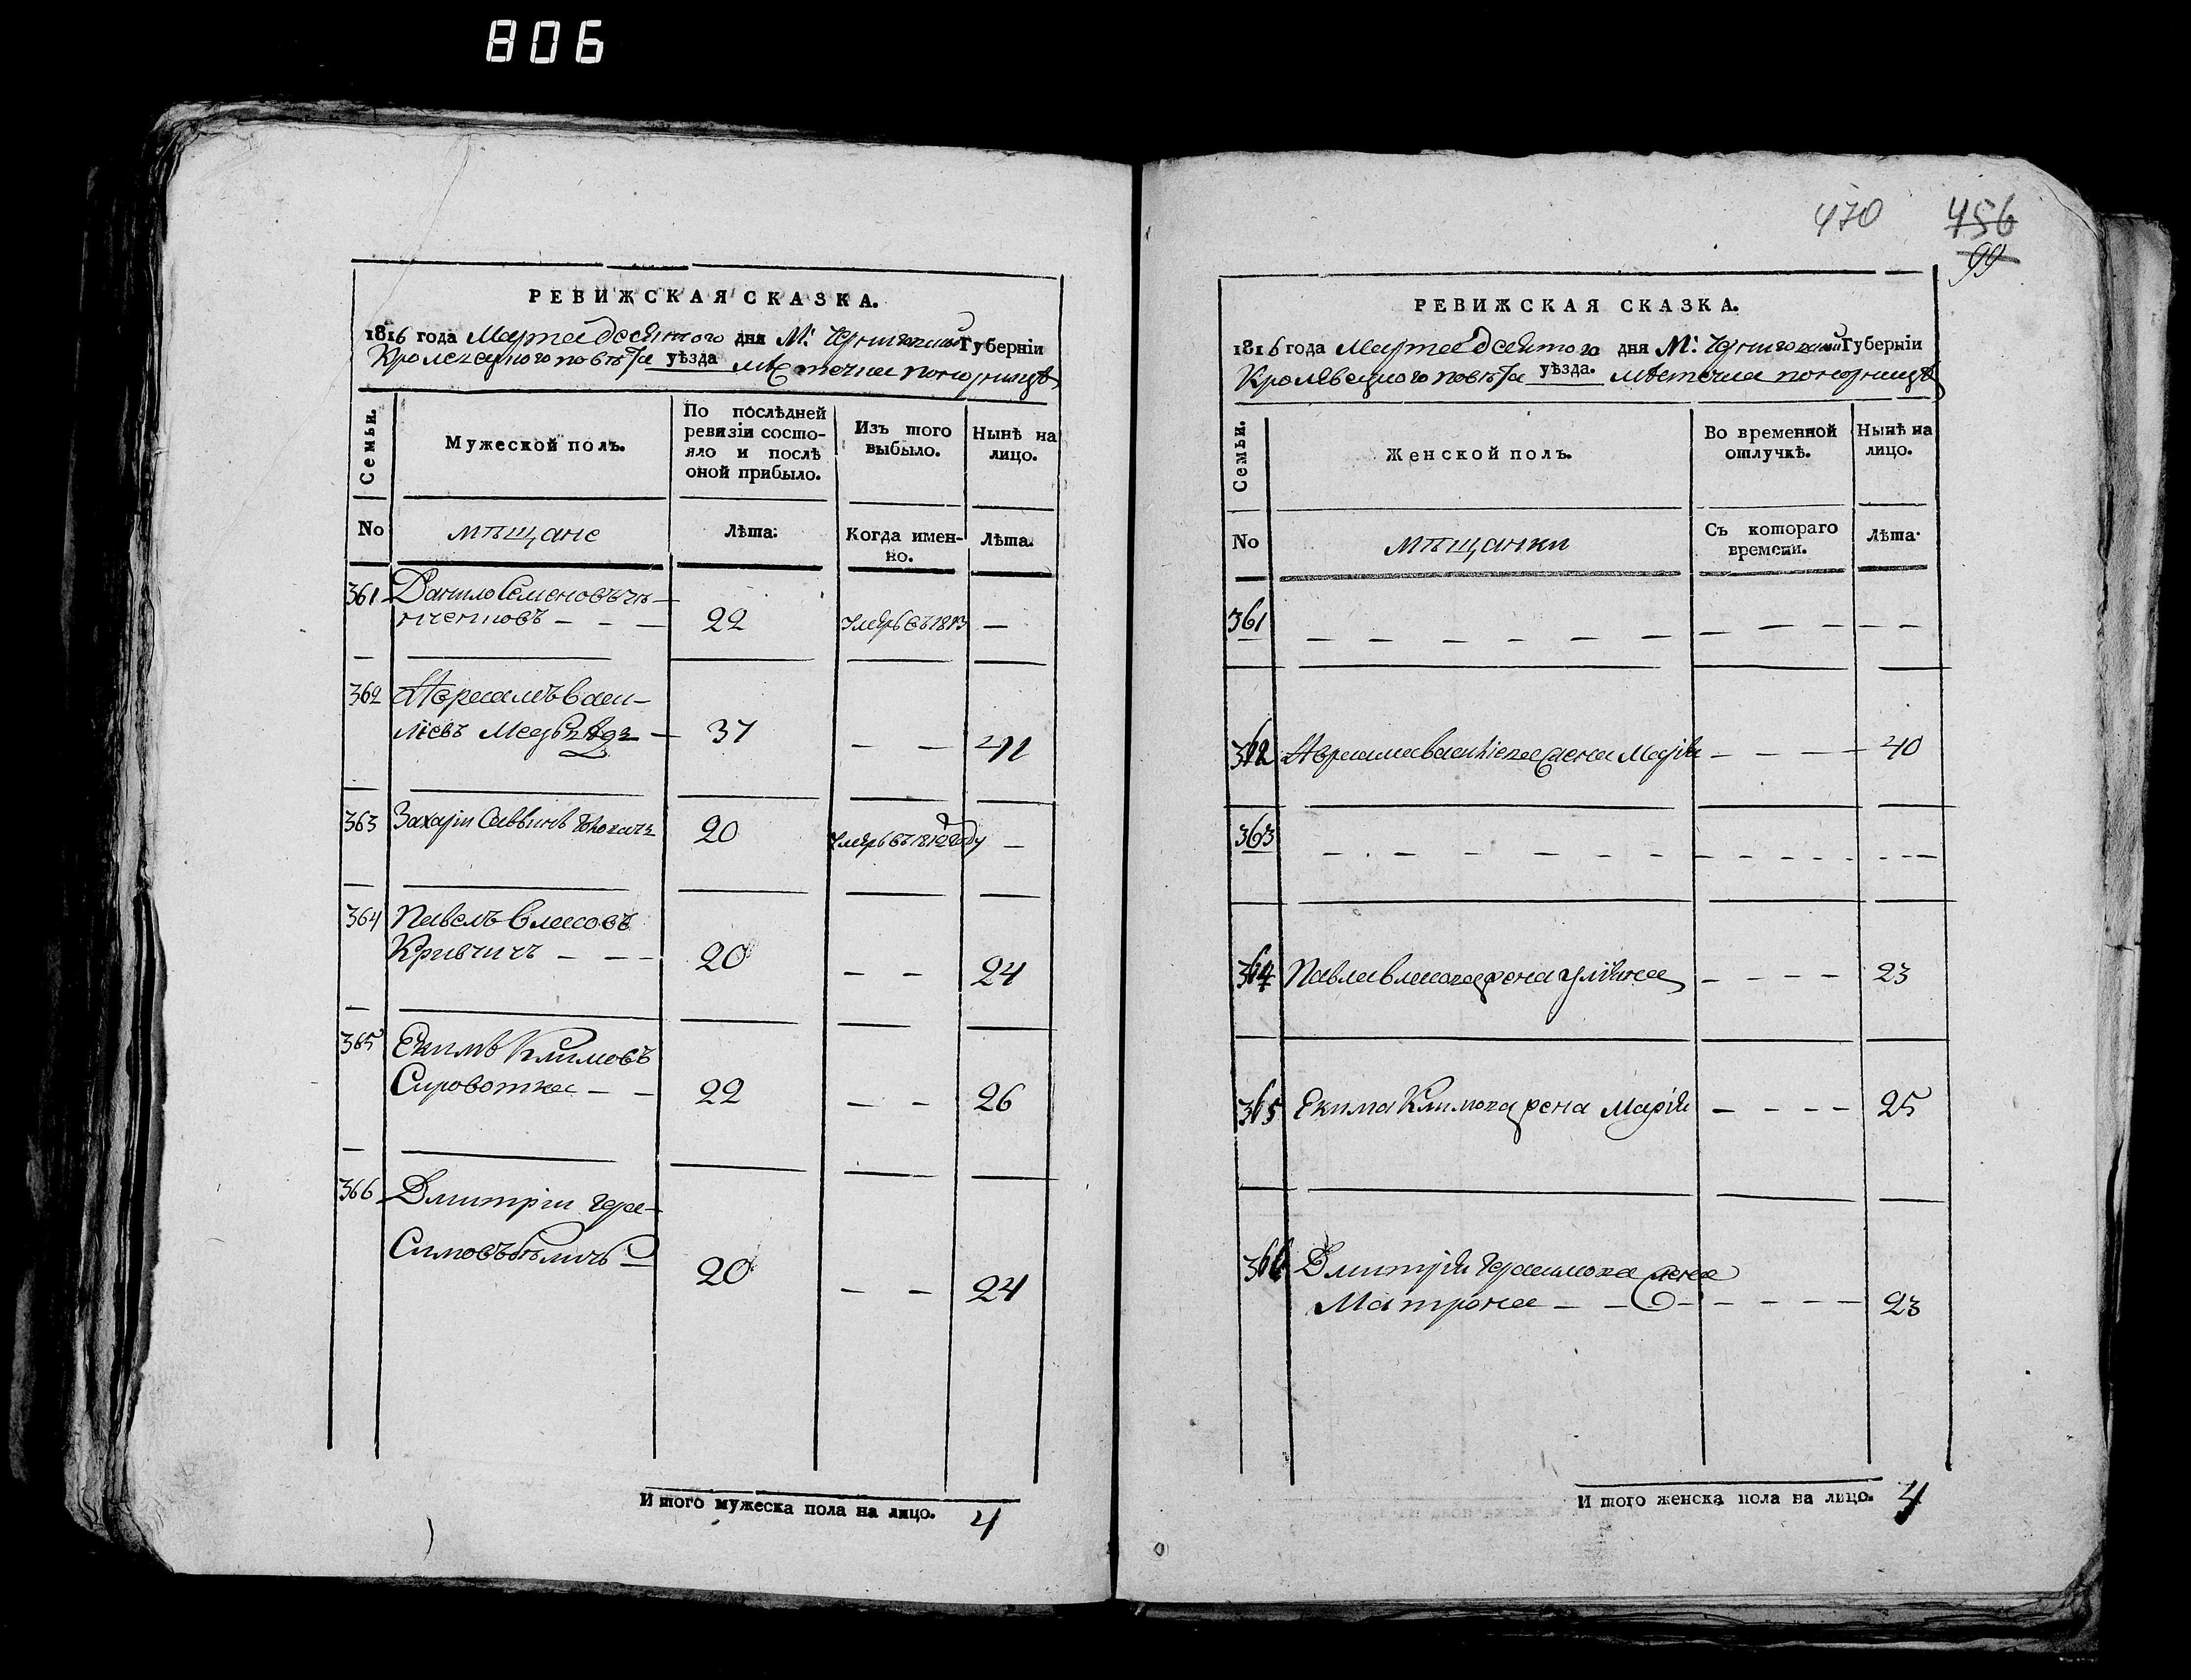 806
РЕВИЖСКАЯ СКАЗКА.
1816 года Марта десятого дня М: Черниговской Губерніи
Кролевецкого повѣта уѣзда мѣстечка понорницѣ
Семьи.
Мужеской полъ.
По послѣдней
ревизіи состо-
яло и послѣ
оной прибыло.
Изъ того
выбыло.
Нынѣ на
лицо.
No
мѣщане
Лѣта:
Когда имен-
но.
Лѣта.
361 Данило Семеновъ
22 умеръ въ 1813 —
362 Абрамъ Васи-
лѣевъ Медвѣдь — 37 — — 41
363 Захарій Саввинъ
20 умеръ въ 1812 году —
364 Павелъ Власовъ
Кривчичъ — — — 20 — — 24
365 Екимъ Климовъ
Сировотка — — 22 — — 26
366 Дмитріи Гера-
симовъ 20 — — 24
И того мужеска пола на лицо. 4
470 456
99
РЕВИЖСКАЯ СКАЗКА.
1816 года Марта десятого дня М: Черниговской Губерніи
Кролевецкого повѣта уѣзда. мѣстечка понорницѣ
Семьи.
Женской полъ.
Во временной
отлучкѣ.
Нынѣ на
лицо.
No
мѣщанки
Съ котораго
времени.
Лѣта:
361 — — — — — —
362 Абрама Василіева жена Марія — — — — 40
363 — — — — — —
364 Павла Власова жена Уліяна — — — — 23
365 Екима Климова жена Марія — — — — 25
366 Дмитрія Герасимова жена
Матрона — — — — — — 23
И того женска пола на лицо. 4